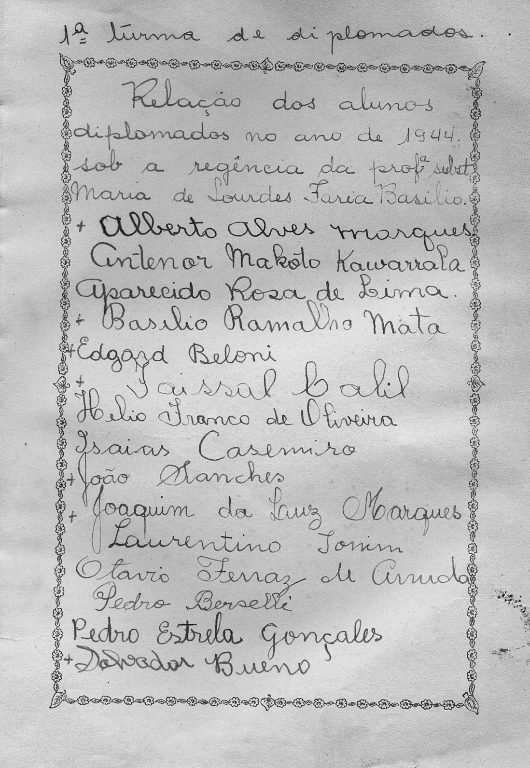 1ª turma de diplomados.
Relação dos alunos
diplomados no ano de 1944.
sob a regência da profª subst
Maria de Lourdes Faria Basilio.
+ Alberto Alves Marques
Antenor Makoto Kawarrala
Aparecido Rosa de Lima.
+ Basilio Ramalho Mata
+ Edgard Beloni
+ Faissal Calil
Helio Franco de Oliveira
Isaias Casemiro
+ João Sanches
+ Joaquim da Luz Marques
Laurentino Tonim
Otavio Ferraz de Arruda
Pedro Berselli
Pedro Estrela Gonçales
+ Salvador Bueno